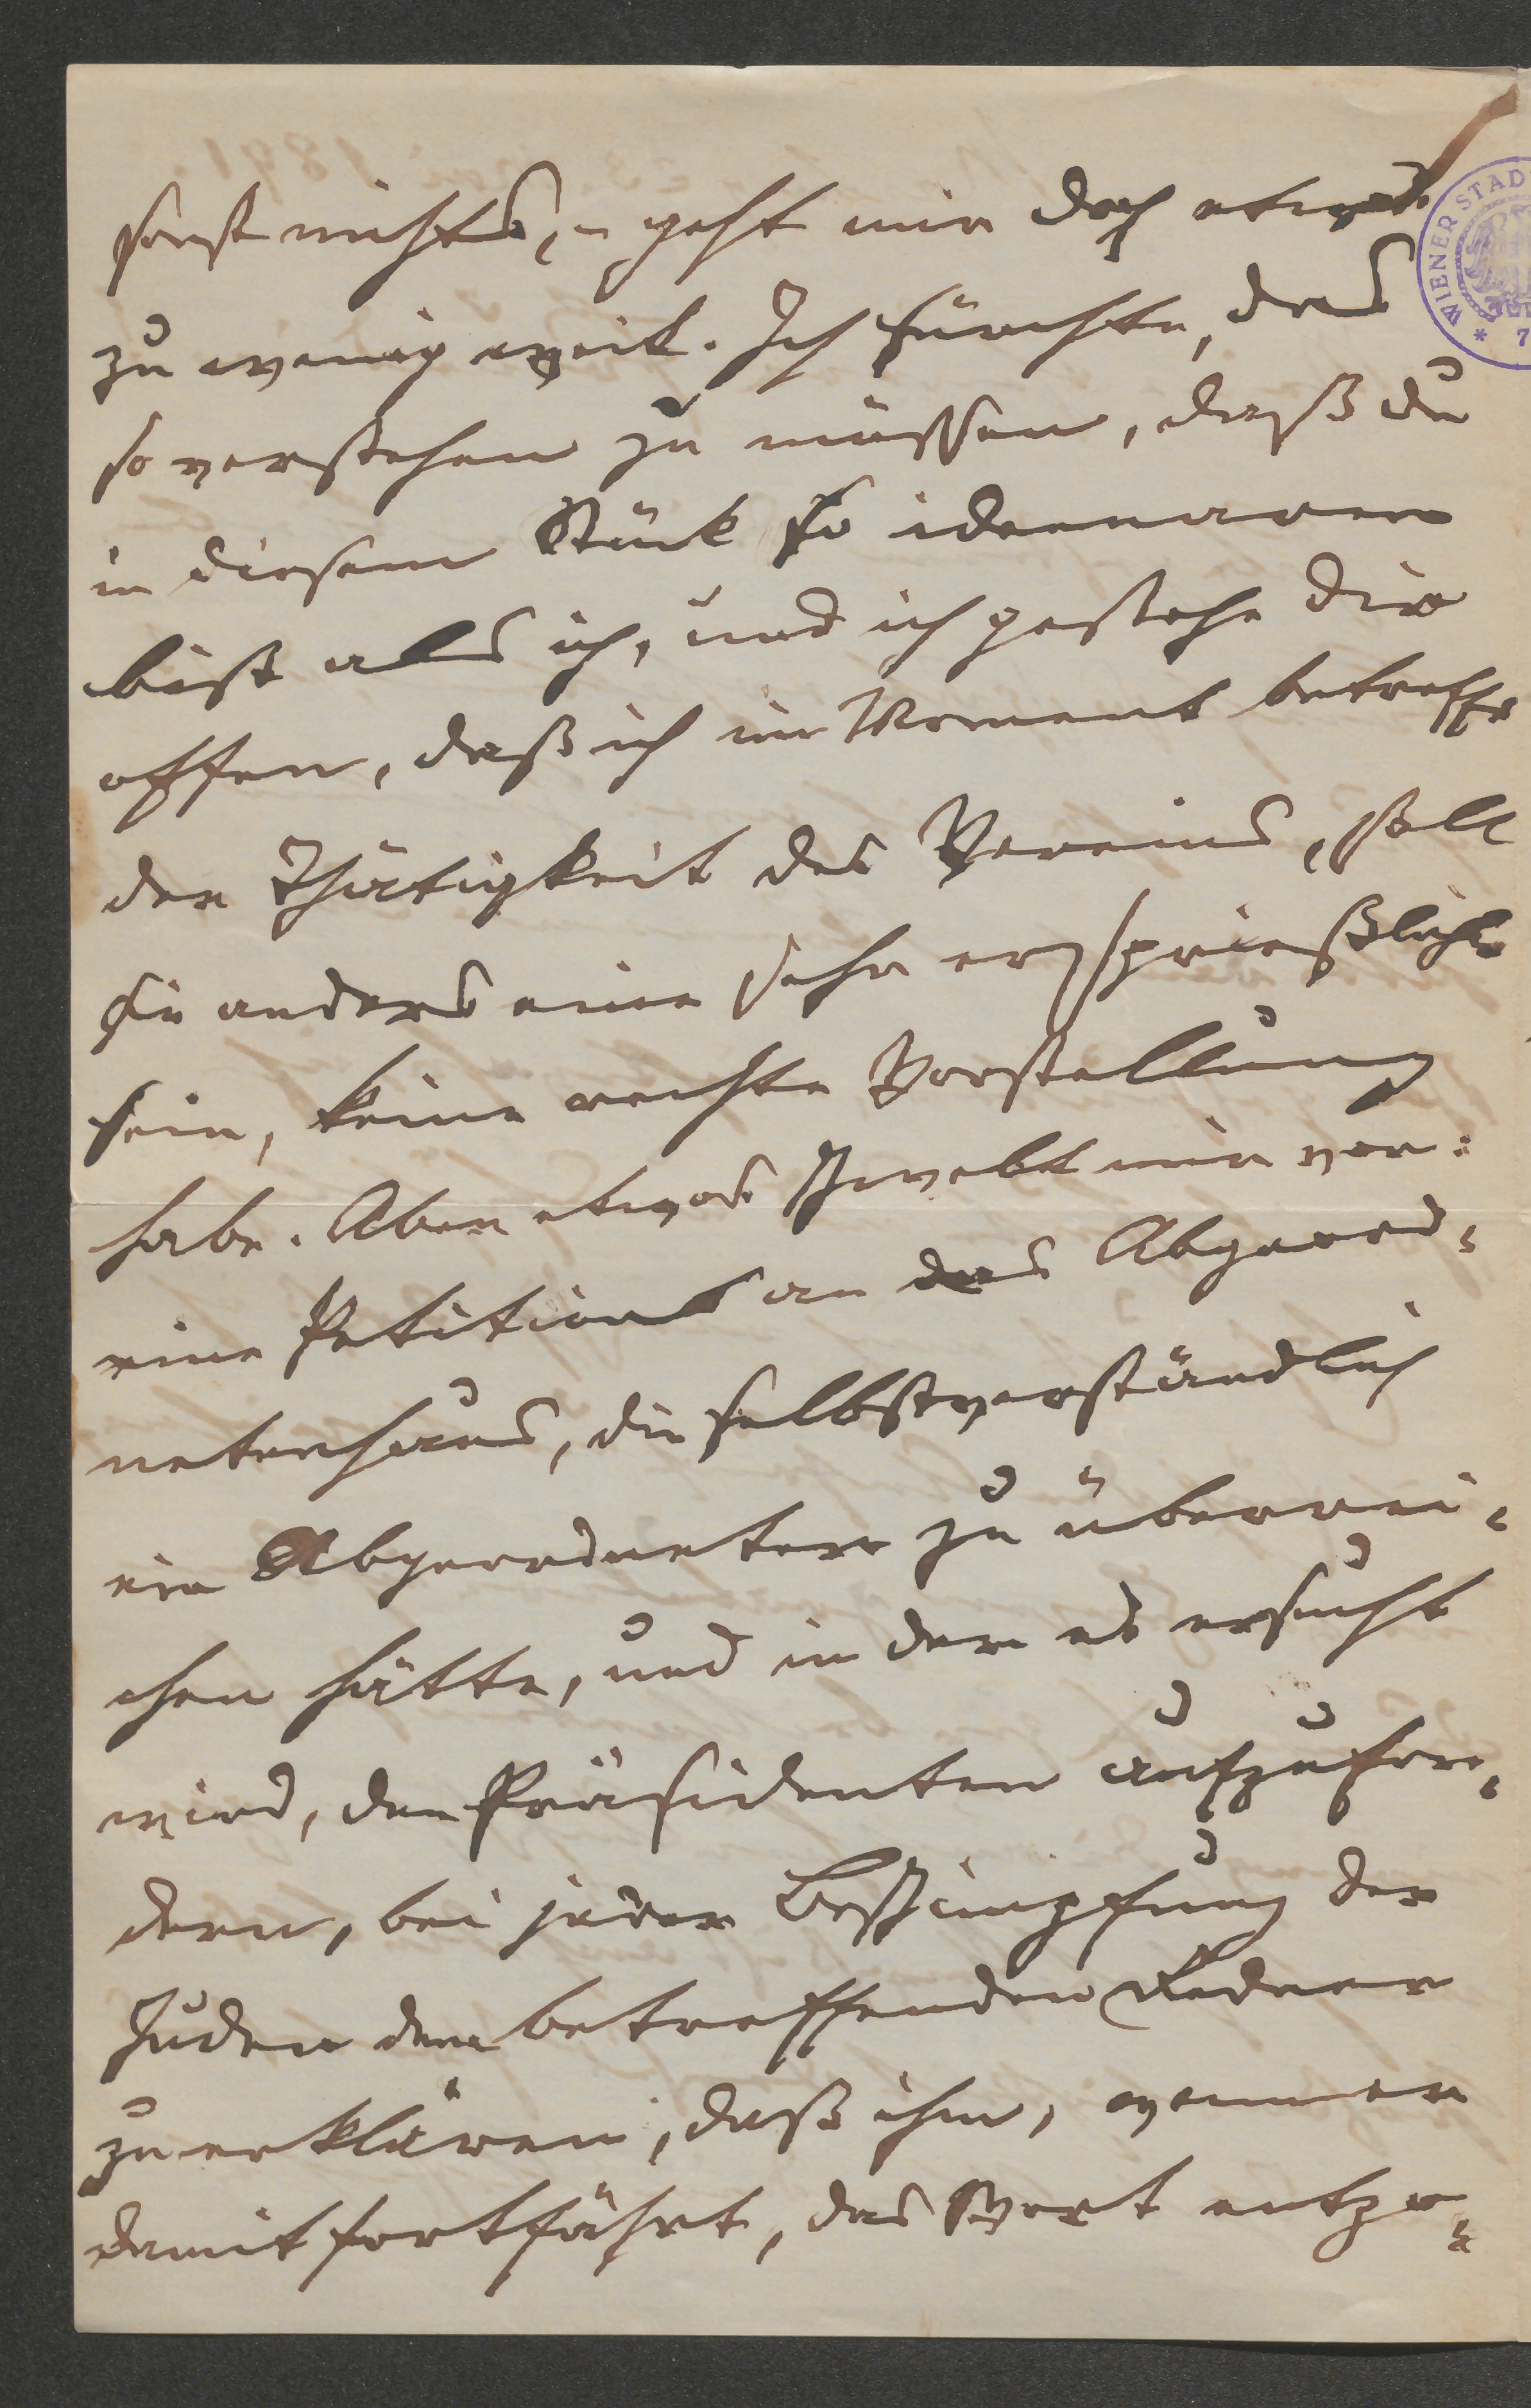 sonst nichts, – geht mir doch etwas
zu wenig weit. Ich fürchte, das
so verstehen zu müssen, daß du
in diesem Stück so ideenarm
bist als ich, und ich gestehe dir
offen, daß ich im Moment betreffs
der Thätigkeit des Vereins, soll
sie anders eine sehr ersprießliche
sein, keine rechte Vorstellung
habe. Aber etwas schwebt mir vor:
eine Petition an das Abgeord-
netenhaus, die selbstverständlich
ein Abgeordneter zu überrei-
chen hätte, und in der es ersucht
wird, den Präsidenten aufzufor-
dern, bei jeder Beschimpfung der
Juden dem betreffenden Redner
zu erklären, daß ihm, wenn er
damit fortfährt, das Wort entzo-
WIENER STAD
* 7